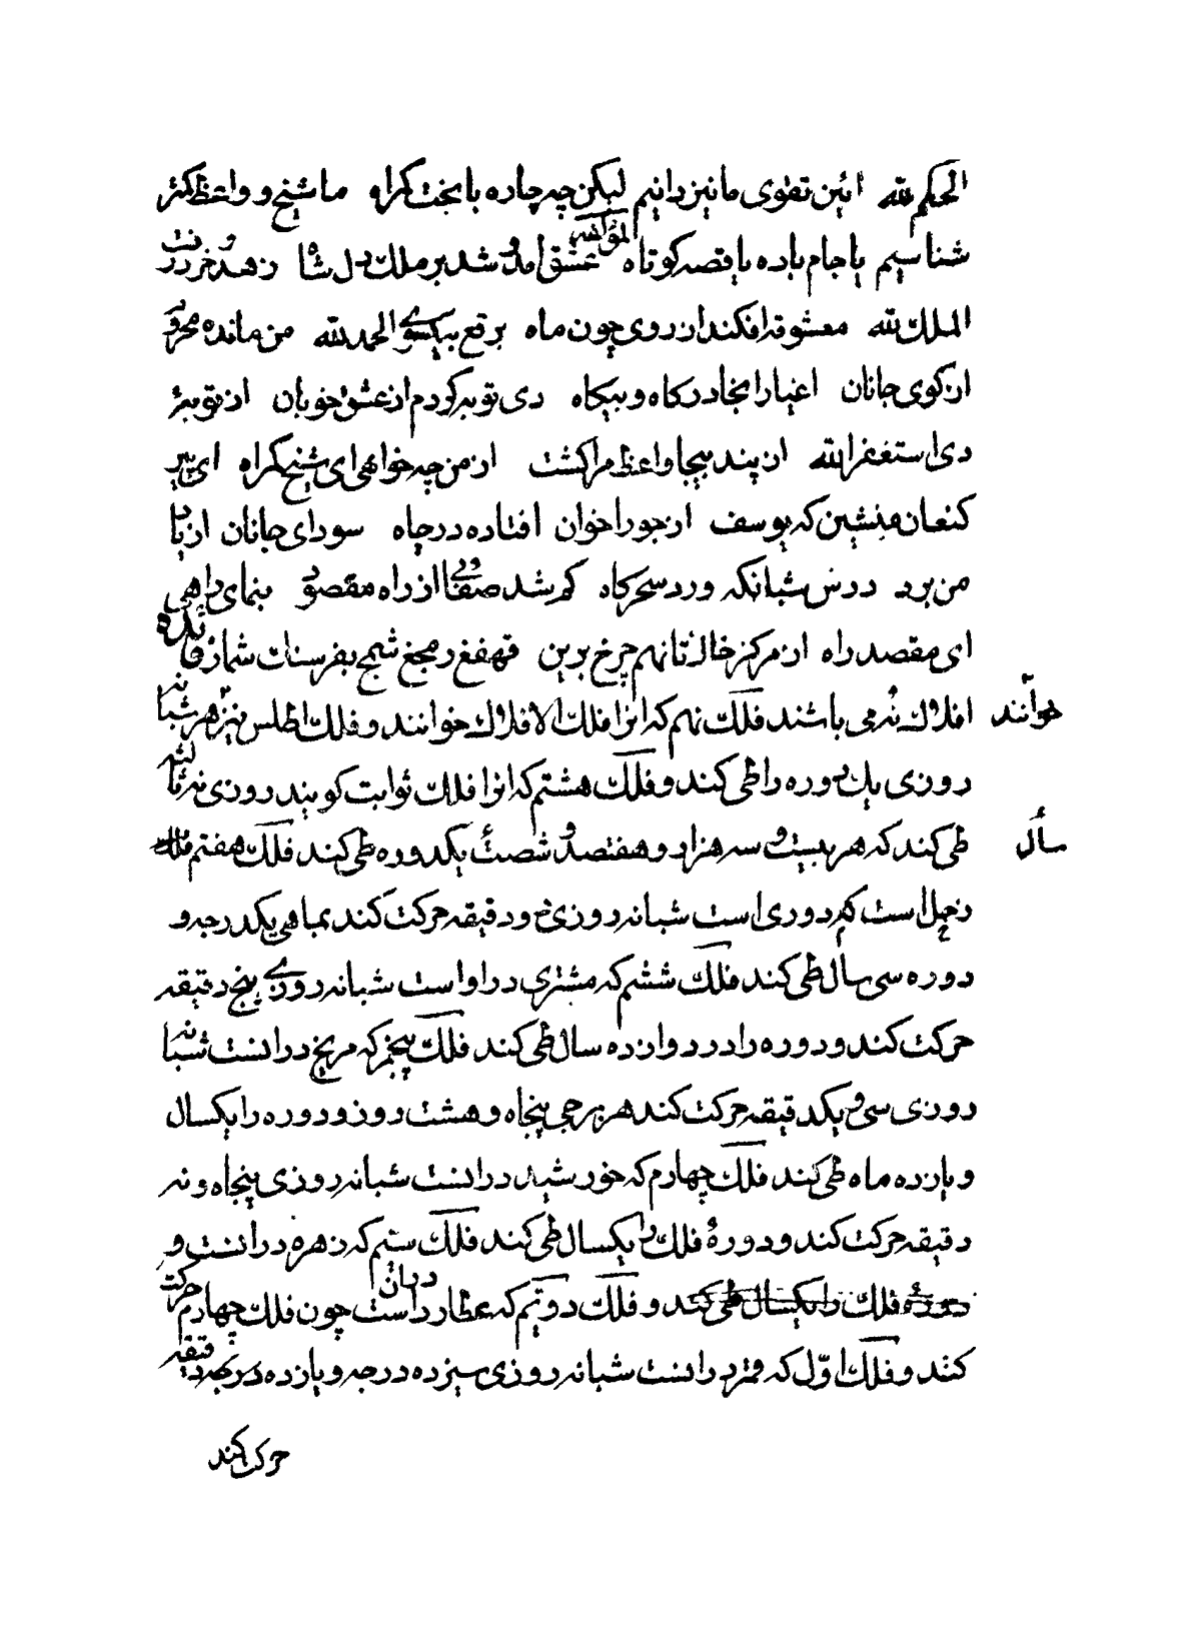 الحکم لله ائین تقوی ما نیز دانیم لیکن چه چاره با بخت کمراه ما شیخ و واعظ کمتر
شناسیم یا جام باده یا قصه کوتاه عشق امد و شد بر ملک دل شاه زهد و خرد رفت
الملک لله معشوقه افکند از روی چون ماه برقع بیکسوی الحمد لله من مانده محروم
از کوی جانان اغیار انجا درکاه و بیکاه دی توبه کردم از عشق خوبان از توبهٔ
دی استغفرالله از پند بیجا واعظ مرا کشت از من چه خواهی ای شیخ کمراه ای پیر
کنعان منشین که یوسف از جور اخوان افتاده در چاه سودای جانان از یاد
من برد درس شبانکه ورد سحرکاه کم شد صفایی از راه مقصود بنمای راهی
ای مقصد راه از مرکز خاک تا نهم چرخ برین قهفغ رمجغ شمج بفرسنات شمار
افلاک نه می باشند فلک نهم که انرا فلک الافلاک خوانند و فلک اطلس نیز خوانند هر شبانه
روزی یک دوره را طی کند و فلک هشتم که انرا فلک ثوابت کویند روزی نه ثالثه
طی کند که هر بیست و سه هزار و هفتصد و شصت سأل یکدوره طی کند فلک هفتم فلک
زحل است که دوری است شبانه روزی دو دقیقه حرکت کند بماهی یکدرجه و
دوره سی سال طی کند فلک ششم که مشتری در او است شبانه روزی پنج دقیقه
حرکت کند و دوره را در دوازده سال طی کند فلک پنجم که مریخ در انست شبانه
روزی سی و یکدقیقه حرکت کند هر برجی پنجاه و هشت روز و دوره را یکسال
و یازده ماه طی کند فلک چهارم که خورشید در انست شبانه روزی پنجاه و نه
دقیقه حرکت کند و دورهٔ فلک را یکسال طی کند فلک سیم که زهره در انست و
دورهٔ فلک را یکسال طی کند و فلک دویم که عطارد در ان است چون فلک چهارم حرکت
کند و فلک اوّل که قمر در انست شبانه روزی سیزده درجه و یازده دقیقه
حرکت کند